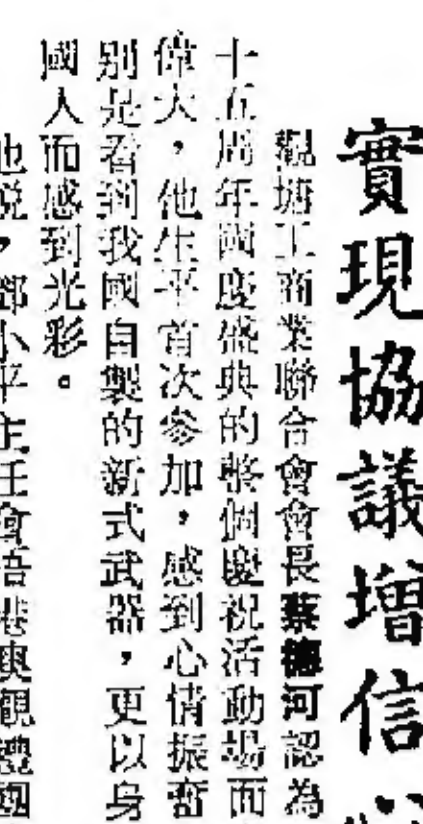 實現協議增信心
觀塘工商業聯合會會長蔡德河認為
十五周年國慶盛典的整個慶祝活動場面
偉大，他生平首次參加，感到心情振奮
別是看到我國自製的新式武器，更以身
國人而感到光彩。
他說，鄧小平主任會晤港澳觀禮團